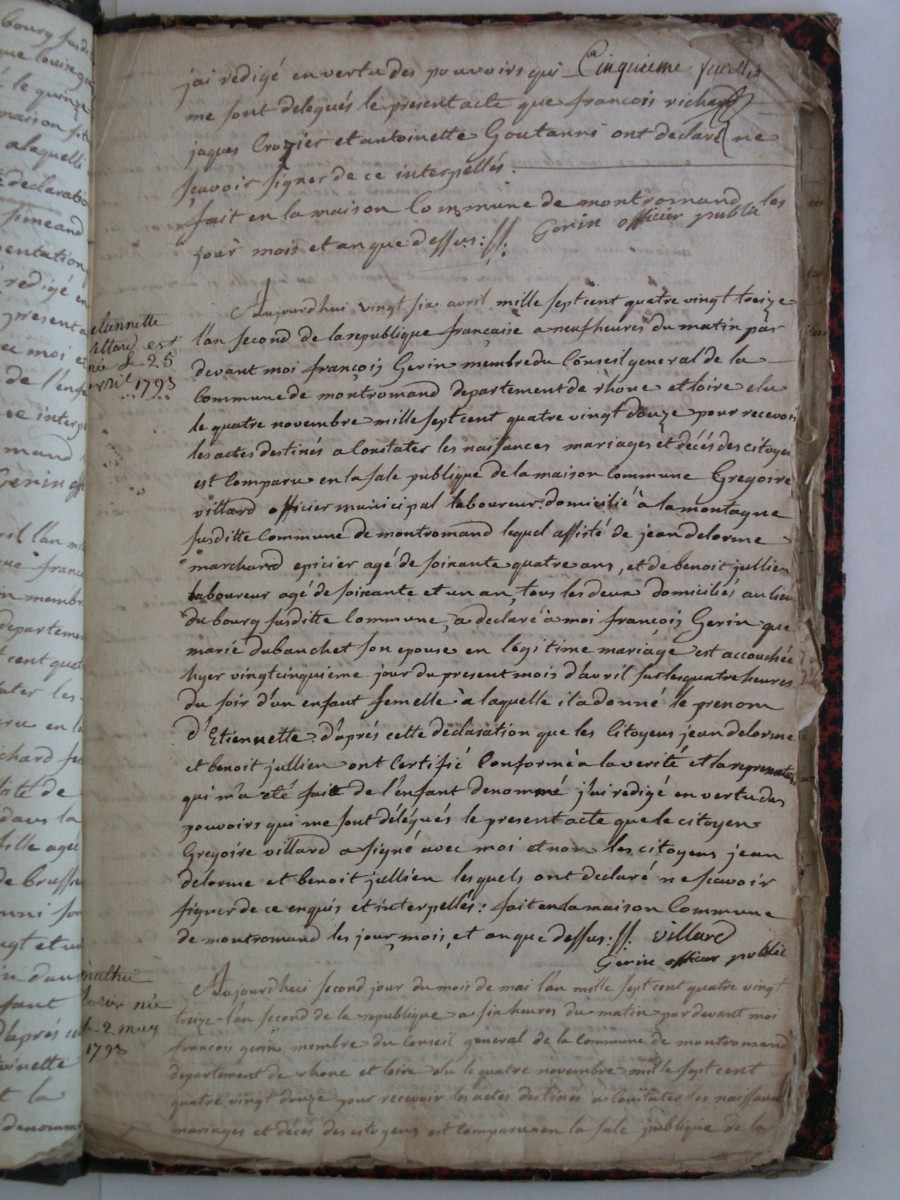 Cinquieme feuillet
jai rédigé en vertu des pouvoirs qui
me sont délegués le present acte que françois richard
jaques Crozier et antoinette Goutanni ont declaré ne
scavoir signer de ce interpellés.
fait en la maison Commune de montromand les
jour mois et an que dessus :ff. Gerin officier public
Aujourdhui vingt six avril mille sept cent quatre vingt treize
l'an second de la republique francaise a neuf heures du matin par
devant moi françois Gerin membre du Conseil general de la
Commune de montromand departement de rhone et loire elu
le quatre novembre mille sept cent quatre vingt douze pour recevoir
les actes destinés a Constater les naissances mariages et décés des citoyens
est comparu en la sale publique de la maison Commune Gregoire
villard officier municipal laboureur domicilié à la montagne
susditte Commune de montromand lequel assisté de jean delorme
marchand epicier agé de soixante quatre ans, et de benoit jullien
laboureur agé de soixante et un an, tous les deux domiciliés au lieu
du bourg susditte Commune, a déclaré à moi françois Gerin que
marie dubanchet son epouse en légitime mariage est accouchée
hyer vingt cinquieme jour du present mois d'avril sur les quatre heures
du soir d'un enfant femelle à laquelle il a donné le prenom
d'Etiennette d'aprés cette déclaration que les Citoyens jean delorme
et benoit jullien ont Certifié Conforme a la verité et la representation
qui m'a été fait de l'enfant denommé j'ai redigé en vertu des
pouvoirs qui me sont délégués le present acte que le citoyen
Gregoire villard a signé avec moi et non les citoyens jean
delorme et benoit jullien lesquels ont declaré ne scavoir
signer de ce enquis et interpellés : fait en la maison Commune
de montromand les jour, mois, et an que dessus :ff. villard
Gerin officier public
etiennette
villard est
née le 25
avril 1793
Aujourdhui second jour du mois de mai l'an mille sept cent quatre vingt
treize l'an second de la republique a six heures du matin par devant moi
francois gerin membre du Conseil general de la Commune de montromand
departement de rhone et loire élu le quatre novembre mille sept cent
quatre vingt douze pour recevoir les actes destinés a Constater les naissances
mariages et décés des citoyens est comparu en la sale publique de la
mathie
né
le 2 may
1793